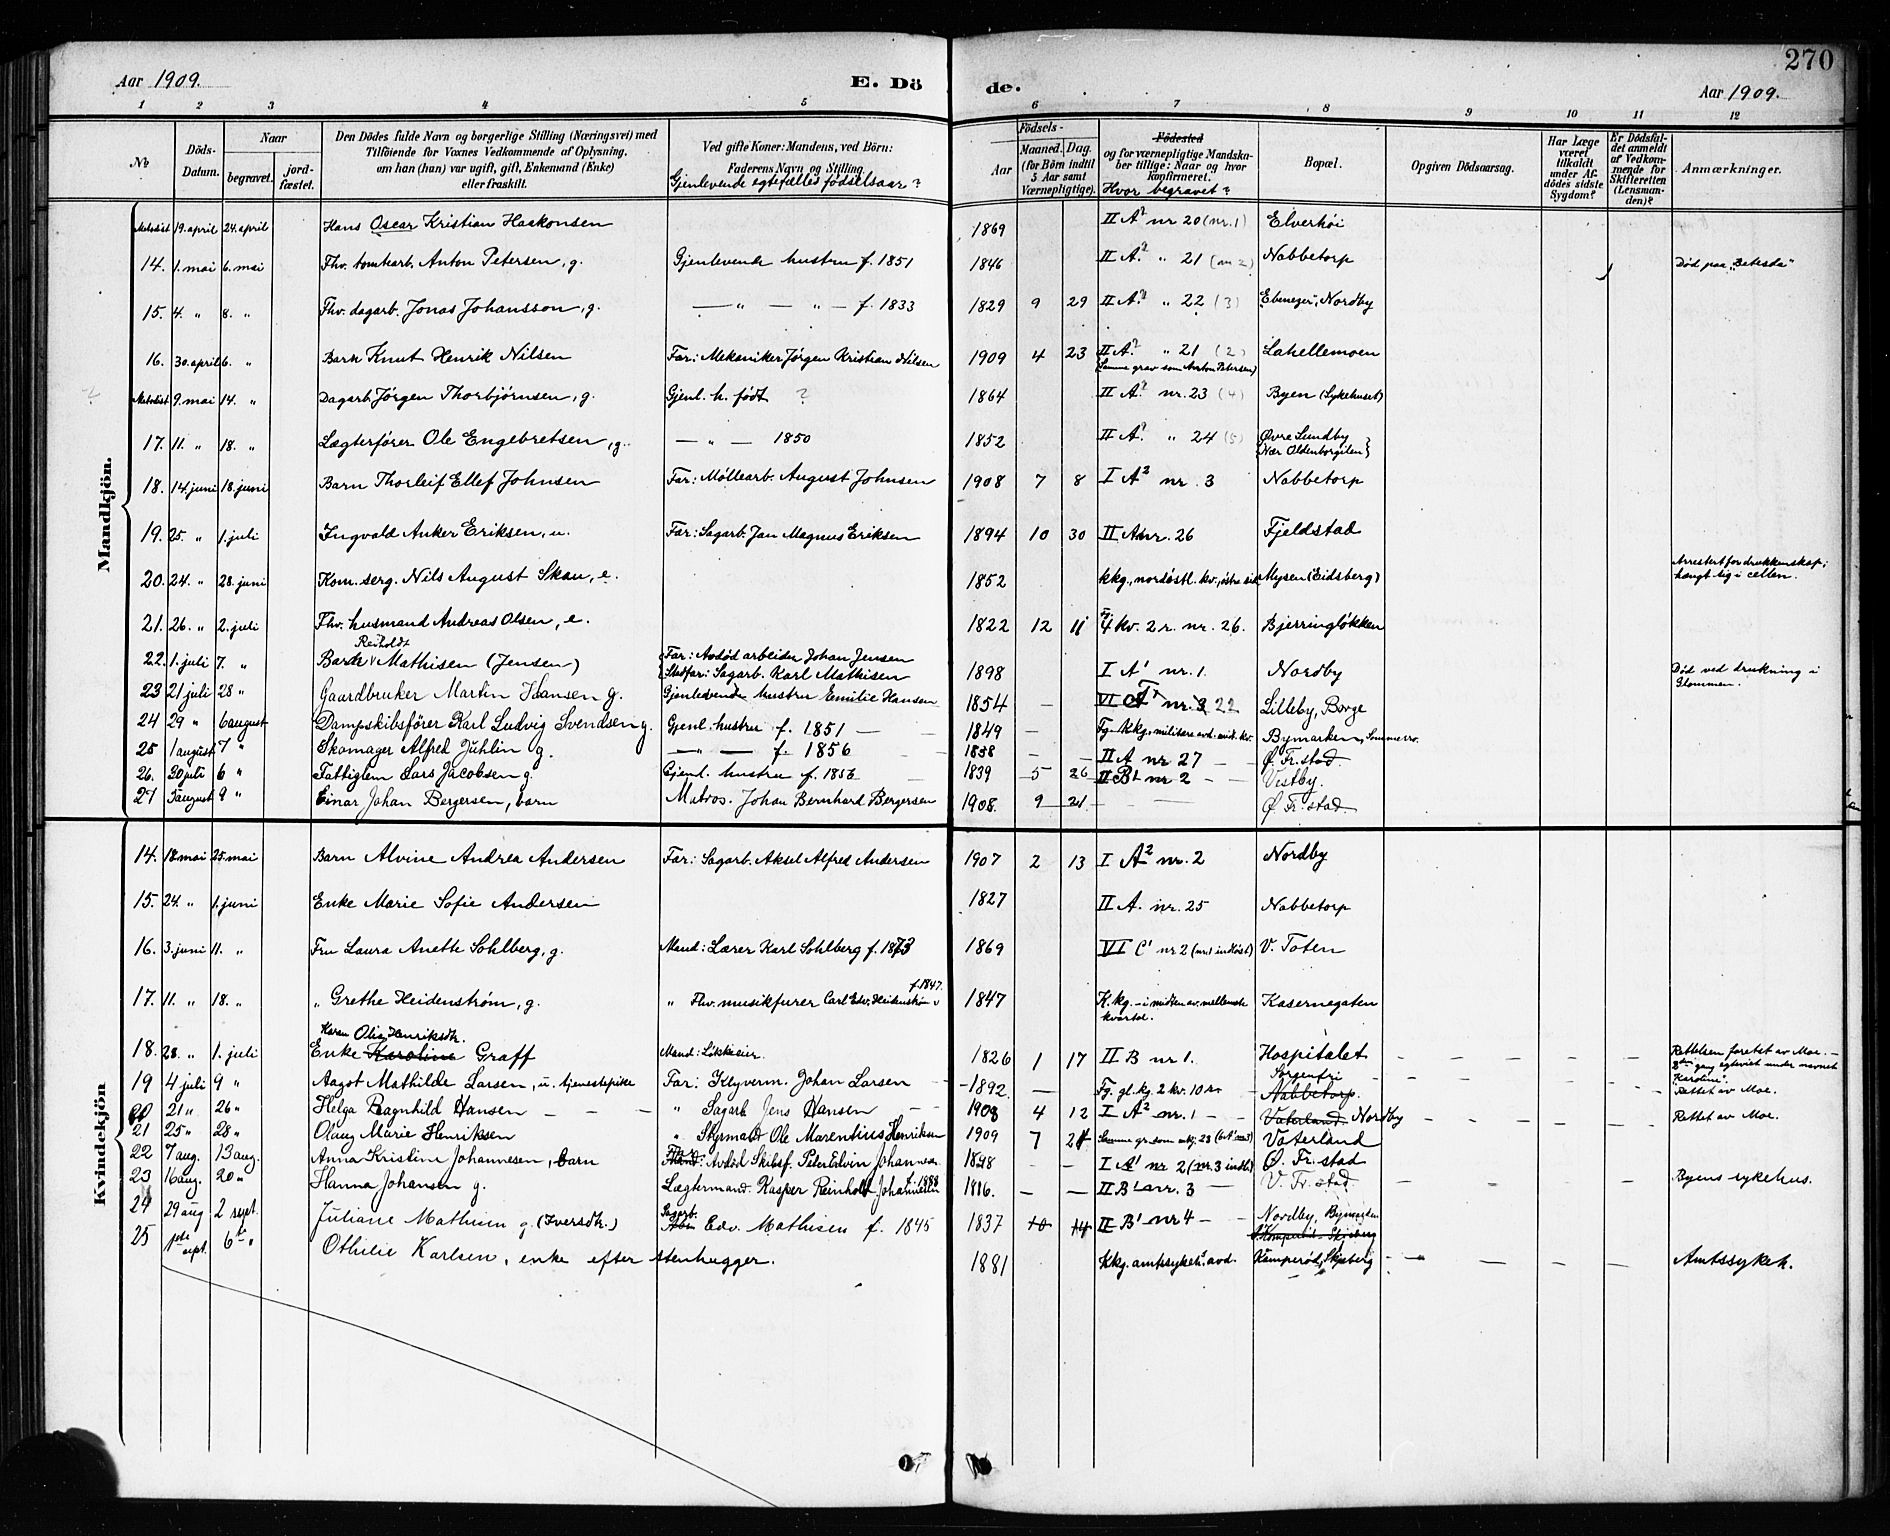 270
Aar 1909. E. Dö de. Aar 1909.
1 2 3 4 5 6 7 8 9 10 11 12
No Döds-Datum. Naar begravet. jord-fæstet. Den Dödes fulde Navn og borgerlige Stilling (Næringsvei) med Tilföiende for Voxnes Vedkommende af Oplysning, om han (hun) var ugift, gift, Enkemand (Enke) eller fraskilt. Ved gifte Koner: Mandens, ved Börn: Faderens Navn og Stilling. Gjenlevende egtefælles fødselsaar? Födsels- Aar Maaned. Dag. (for Börn indtil 5 Aar samt Værnepligtige). Födested og for værnepligtige Mandskaber tillige: Naar og hvor konfirmeret. Hvor begravet? Bopæl. Opgiven Dödsaarsag. Har Læge været tilkaldt under Afdödes sidste Sygdom? Er Dödsfaldet anmeldt af Vedkommende for Skifteretten (Lensmanden)? Anmærkninger.
Mandkjön.
Metodist 19. april 24. april Hans Oscar Kristian Haakonsen 1869 II A² nr 20 (nr. 1) Elverhöi
14. 1. mai 6. mai Fhv. tomtearb. Anton Petersen, g. Gjenlevende hustru f. 1851 1846 II A² " 21 Nabbetorp Død paa "Betesda"
15. 4. " 8. " Fhv. dagarb. Jonas Johansson, g. — " — " — f. 1833 1829 9 29 II A² " 22 (3) "Ebenezer", Nordby
16. 30. april 6. " Barn Knut Henrik Nilsen Far: Mekaniker Jørgen Kristian Nilsen 1909 4 23 II A² " 21 (2) (Samme grav som Anton Petersen) Lahellemoen
Metodist 9. mai 14. " Dagarb. Jørgen Thorbjørnsen, g. Gjenl. h. født ? 1864 II A² nr. 23 (4) Byen (Sykehuset)
17. 11. " 18. " Lægterfører Ole Engebretsen, g. — " — 1850 1852 II A² " 24 (5) Øvre Sundby (Nær Oldenborgilen)
18. 14. juni 18. juni Barn Thorleif Ellef Johnsen Far: Møllearb. August Johnsen 1908 7 8 I A² nr. 3 Nabbetorp
19. 25. " 1. juli Ingvald Anker Eriksen, u. Far: Sagarb. Jan Magnus Eriksen 1894 10 30 II A nr. 26 Fjeldstad
20. 24. " 28. juni Kom. serg. Nils August Skau, e. 1852 kkg., nordøstl. kv., østre side Mysen (Eidsberg) Arrestert for drukkenskap; hængt sig i cellen.
21. 26. " 2. juli Fhv. husmand Andreas Olsen, e. 1822 12 11 4 kv. 2 r. nr. 26. Bjerringløkken
22. 1. juli 7. " Barn Reiholdt Mathisen (Jensen) Far: Avdød arbeider Johan Jensen Stedfar: Sagarb. Karl Mathisen 1898 I A¹ nr. 1. Nordby Død ved drukning i Glommen.
23 21 juli 28 " Gaardbruker Martin Hansen g. Gjenlevende hustru Emilie Hansen 1854 — VI A¹ nr. 22 Lilleby, Borge
24 29 " 6 august Dampskibsfører Karl Ludvig Svendsen g. Gjenl. hustru f. 1851 — 1849 — Fg. kkg., militære avd. Bymarken, Sommerro.
25 1 august 7 " Skomager Alfred Juhlin g. — " — f. 1856 1838 — II A nr 27 Ø. Fr. stad.
26. 30 juli 6 " Fattiglem Lars Jacobsen g. Gjenl. hustru f. 1856 1839 5 26 II B¹ nr 2 Vestby.
27 3 august 9 " Einar Johan Bergersen, barn Matros. Johan Bernhard Bergersen 1908. 9 21 — Ø. Fr. stad
Kvindekjön
14. 18. mai 25. mai Barn Alvine Andrea Andersen Far: Sagarb. Aksel Alfred Andersen 1907 2 13 I A² nr. 2 Nordby
15. 24. " 1. juni Enke Marie Sofie Andersen 1827 II A. nr. 25 Nabbetorp
16. 3. juni 11. " Fru Laura Anette Sohlberg, g. Mand: Lærer Karl Sohlberg f. 1873 1869 VI C¹ nr 2 (nr 1 indløst) V. Toten
17. 11. " 18. " " Grethe Heidenstrøm, g. " Fhv. musikfurer Carl Edv. Heidenstrøm f. 1847. 1847 K. kg. – i midten av mellemste kvartal. Kasernegaten
18. 28. " 1. juli Enke Karoline Karen Olia Henriksdtr. Graff Mand: Løkkeeier. 1826 1 17 II B nr 1. Hospitalet Rettelsen foretat av Moe. – 2den gang egteviet under navnet "Karoline".
19 4 juli 9 " Aagot Mathilde Larsen, u. tjenestepike Far: Klyverm. Johan Larsen 1892. — Fg. gl. kg. 2 kv. 10 Nabbetorp. Sorgenfri Rettet av Moe.
20 21 " 26 " Helga Ragnhild Hansen " Sagarb Jens Hansen 1908 4 12 I A² nr. 1 Vaterland Nordby Rettet av Moe.
21 25 " 28 " Olaug Marie Henriksen " Styrmand Ole Marentius Henriksen 1909 7 21 Samme gr. som Vaterland
22 7 aug. 13 aug. Anna Kristine Johannesen, barn Far: Avdød Skibsf. Peter Edvin Johannesen 1898 — I A¹ nr 2 (nr. 3 indl.) Ø. Fr. stad
23 16 aug. 20 " Hanna Johansen g. Lægtermand. Kasper Reinholt Johannesen 1886. — II B¹ nr. 3 V. Fr. stad Byens sykehus.
24 29 aug 2 sept. Juliane Mathisen g. (Iversdtr.) Sagarb. Edv. Mathisen f. 1845 1837 10 14 II B¹ nr 4 Nordby, Bymarken
25 1ste sept. 6te " Othilie Karlsen, enke efter stenhugger. 1881 Kkg. amtssykeh. avd. Kamperød, Skjeberg Amtssykeh.